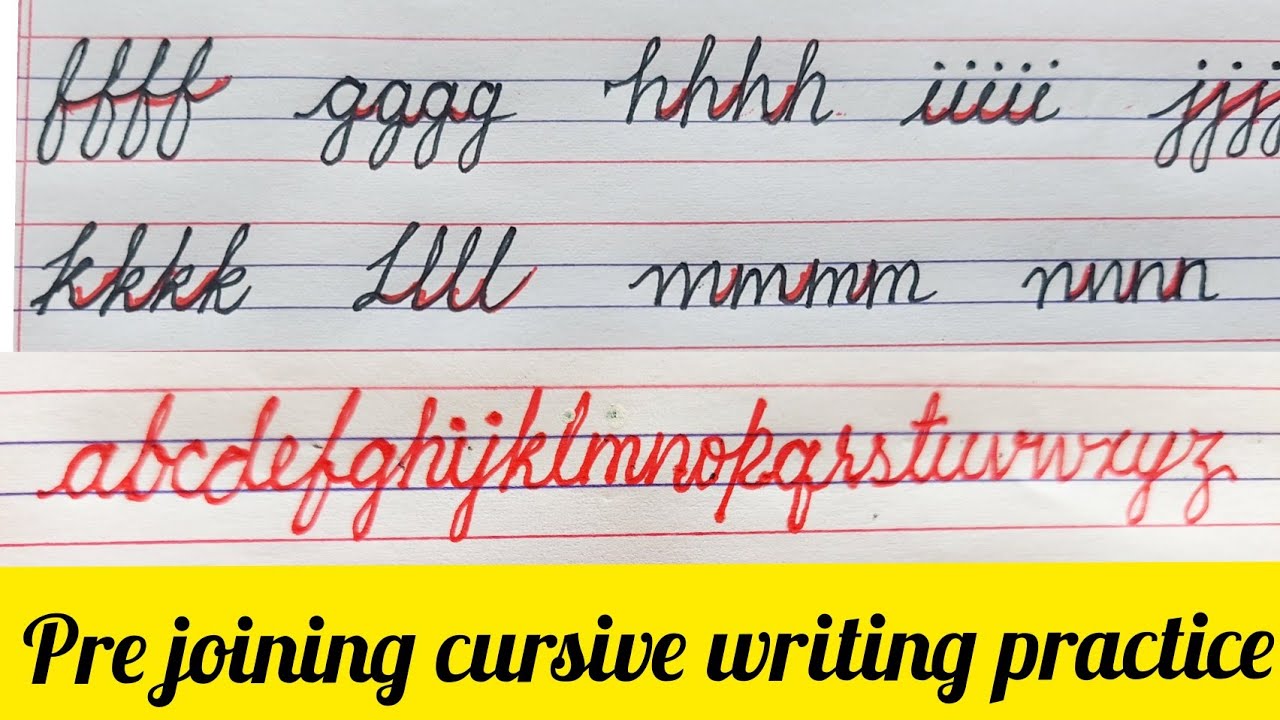 ffff gggg hhhh iiiii jjjj
kkkk llll mmmm nnnn
abcdefghijklmnopqrstuvwxyz
Pre joining cursive writing practice